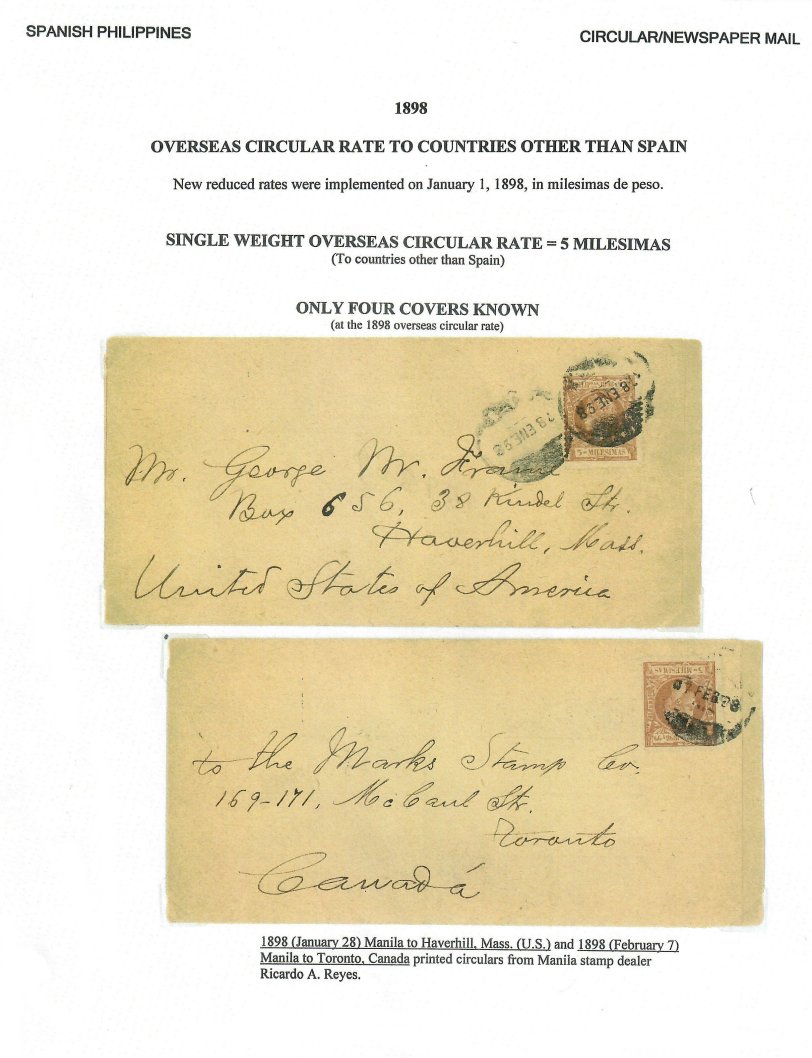 SPANISH PHILIPPINES
CIRCULAR/NEWSPAPER MAIL
1898
OVERSEAS CIRCULAR RATE TO COUNTRIES OTHER THAN SPAIN
New reduced rates were implemented on January 1, 1898, in milesimas de peso.
SINGLE WEIGHT OVERSEAS CIRCULAR RATE = 5 MILESIMAS
(To countries other than Spain)
ONLY FOUR COVERS KNOWN
(at the 1898 overseas circular rate)
28 ENE 98
28 ENE 98
5 - MILESIMAS
Mr. George W.
Box 656, 38 Kindel Str.
Haverhill, Mass.
United States of America
5 - MILESIMAS
07 FEB 98
to the Marks Stamp Co.
169-171, McCaul Str.
Toronto
Canadá
1898 (January 28) Manila to Haverhill, Mass. (U.S.) and 1898 (February 7)
Manila to Toronto, Canada printed circulars from Manila stamp dealer
Ricardo A. Reyes.